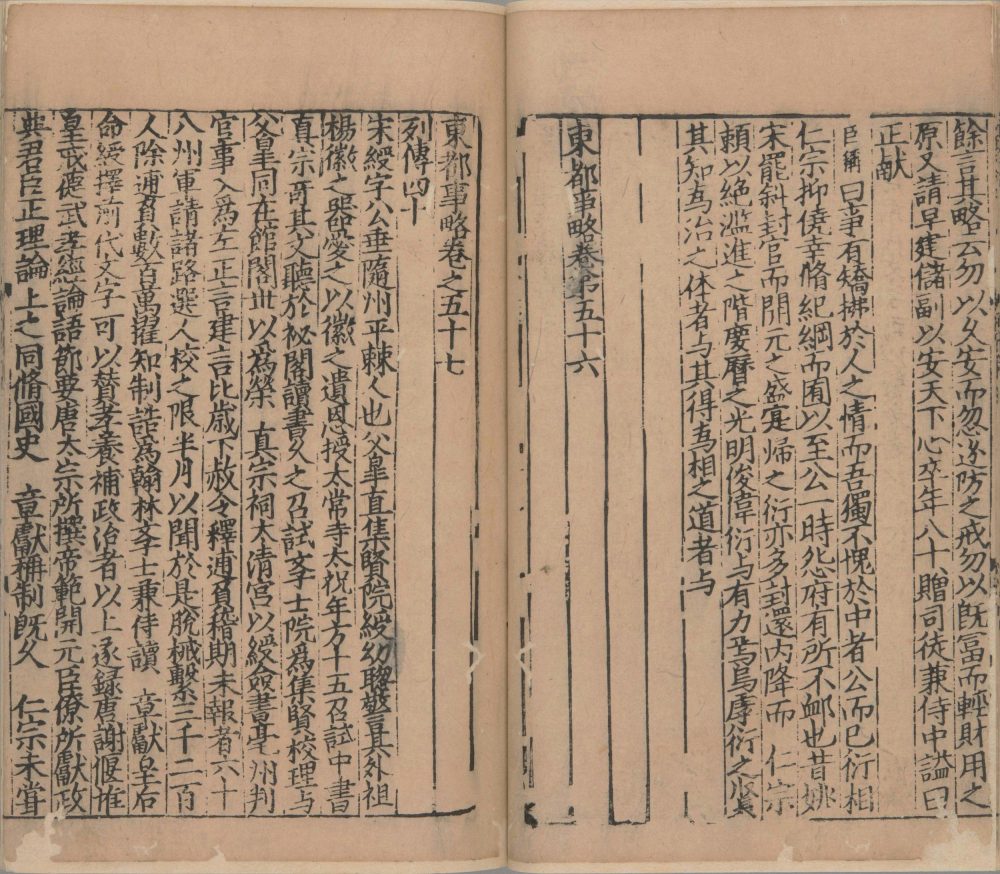 餘言其略云勿以久安而忽邊防之戒勿以既冨而輕財用之
原又請早建儲副以安天下心卒年八十贈司徒兼侍中謚曰
正献
臣稱曰事有矯拂於人之情而吾獨不愧於中者公而已衍相
仁宗抑僥幸脩紀綱而囿以至公一時怨府有所不䘏也昔姚
宋罷斜封官而開元之盛寔歸之衍亦多封還内降而 仁宗
頼以絶濫進之階慶曆之光明俊偉衍与有力焉烏虖衍之賢
其知為治之体者与其得為相之道者与
東都事略卷第五十六
東都事略卷之五十七
列傳四十
宋綬字公垂隨州平棘人也父臯直集賢院綬幼聦警爲其外祖
楊徽之器愛之以徽之遺恩授太常寺太祝年方十五召試中書
真宗竒其文聽於祕閣讀書久之召試斈士院爲集賢校理与
父臯同在館閣丗以爲榮 真宗祠太清宫以綬僉書亳州判
官事入爲左正言建言比歳下赦令釋逋負稽期未報者六十
八州軍請諸路選人校之限半月以聞於是脫械繫三千二百
人除逋負數百萬擢知制誥爲翰林斈士兼侍讀 章獻皇后
命綬擇前代文字可以賛孝養補政治者以上遂録唐謝偃惟
皇戒德武孝經論語節要唐太宗所撰帝範開元臣僚所獻政
典君臣正理論上之同脩國史 章獻稱制既久 仁宗未甞